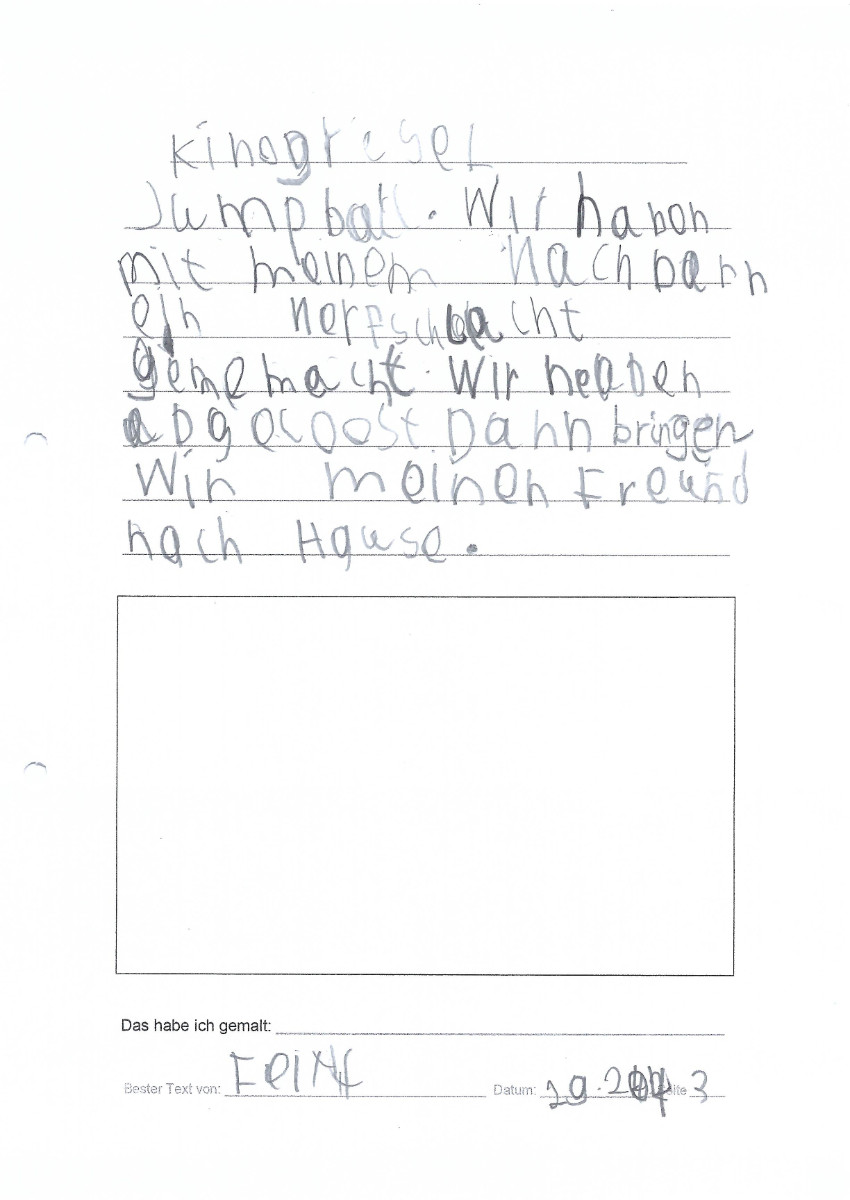 Kinogriesel
Jumpball. Wir haben
mit meinem Nachbarn
ein nerfschlacht
gememacht. Wir heaben
abgecoost. Dann bringen
Wir meinen Freund
nach Hause.
Das habe ich gemalt:
Bester Text von: Datum: Seite 3